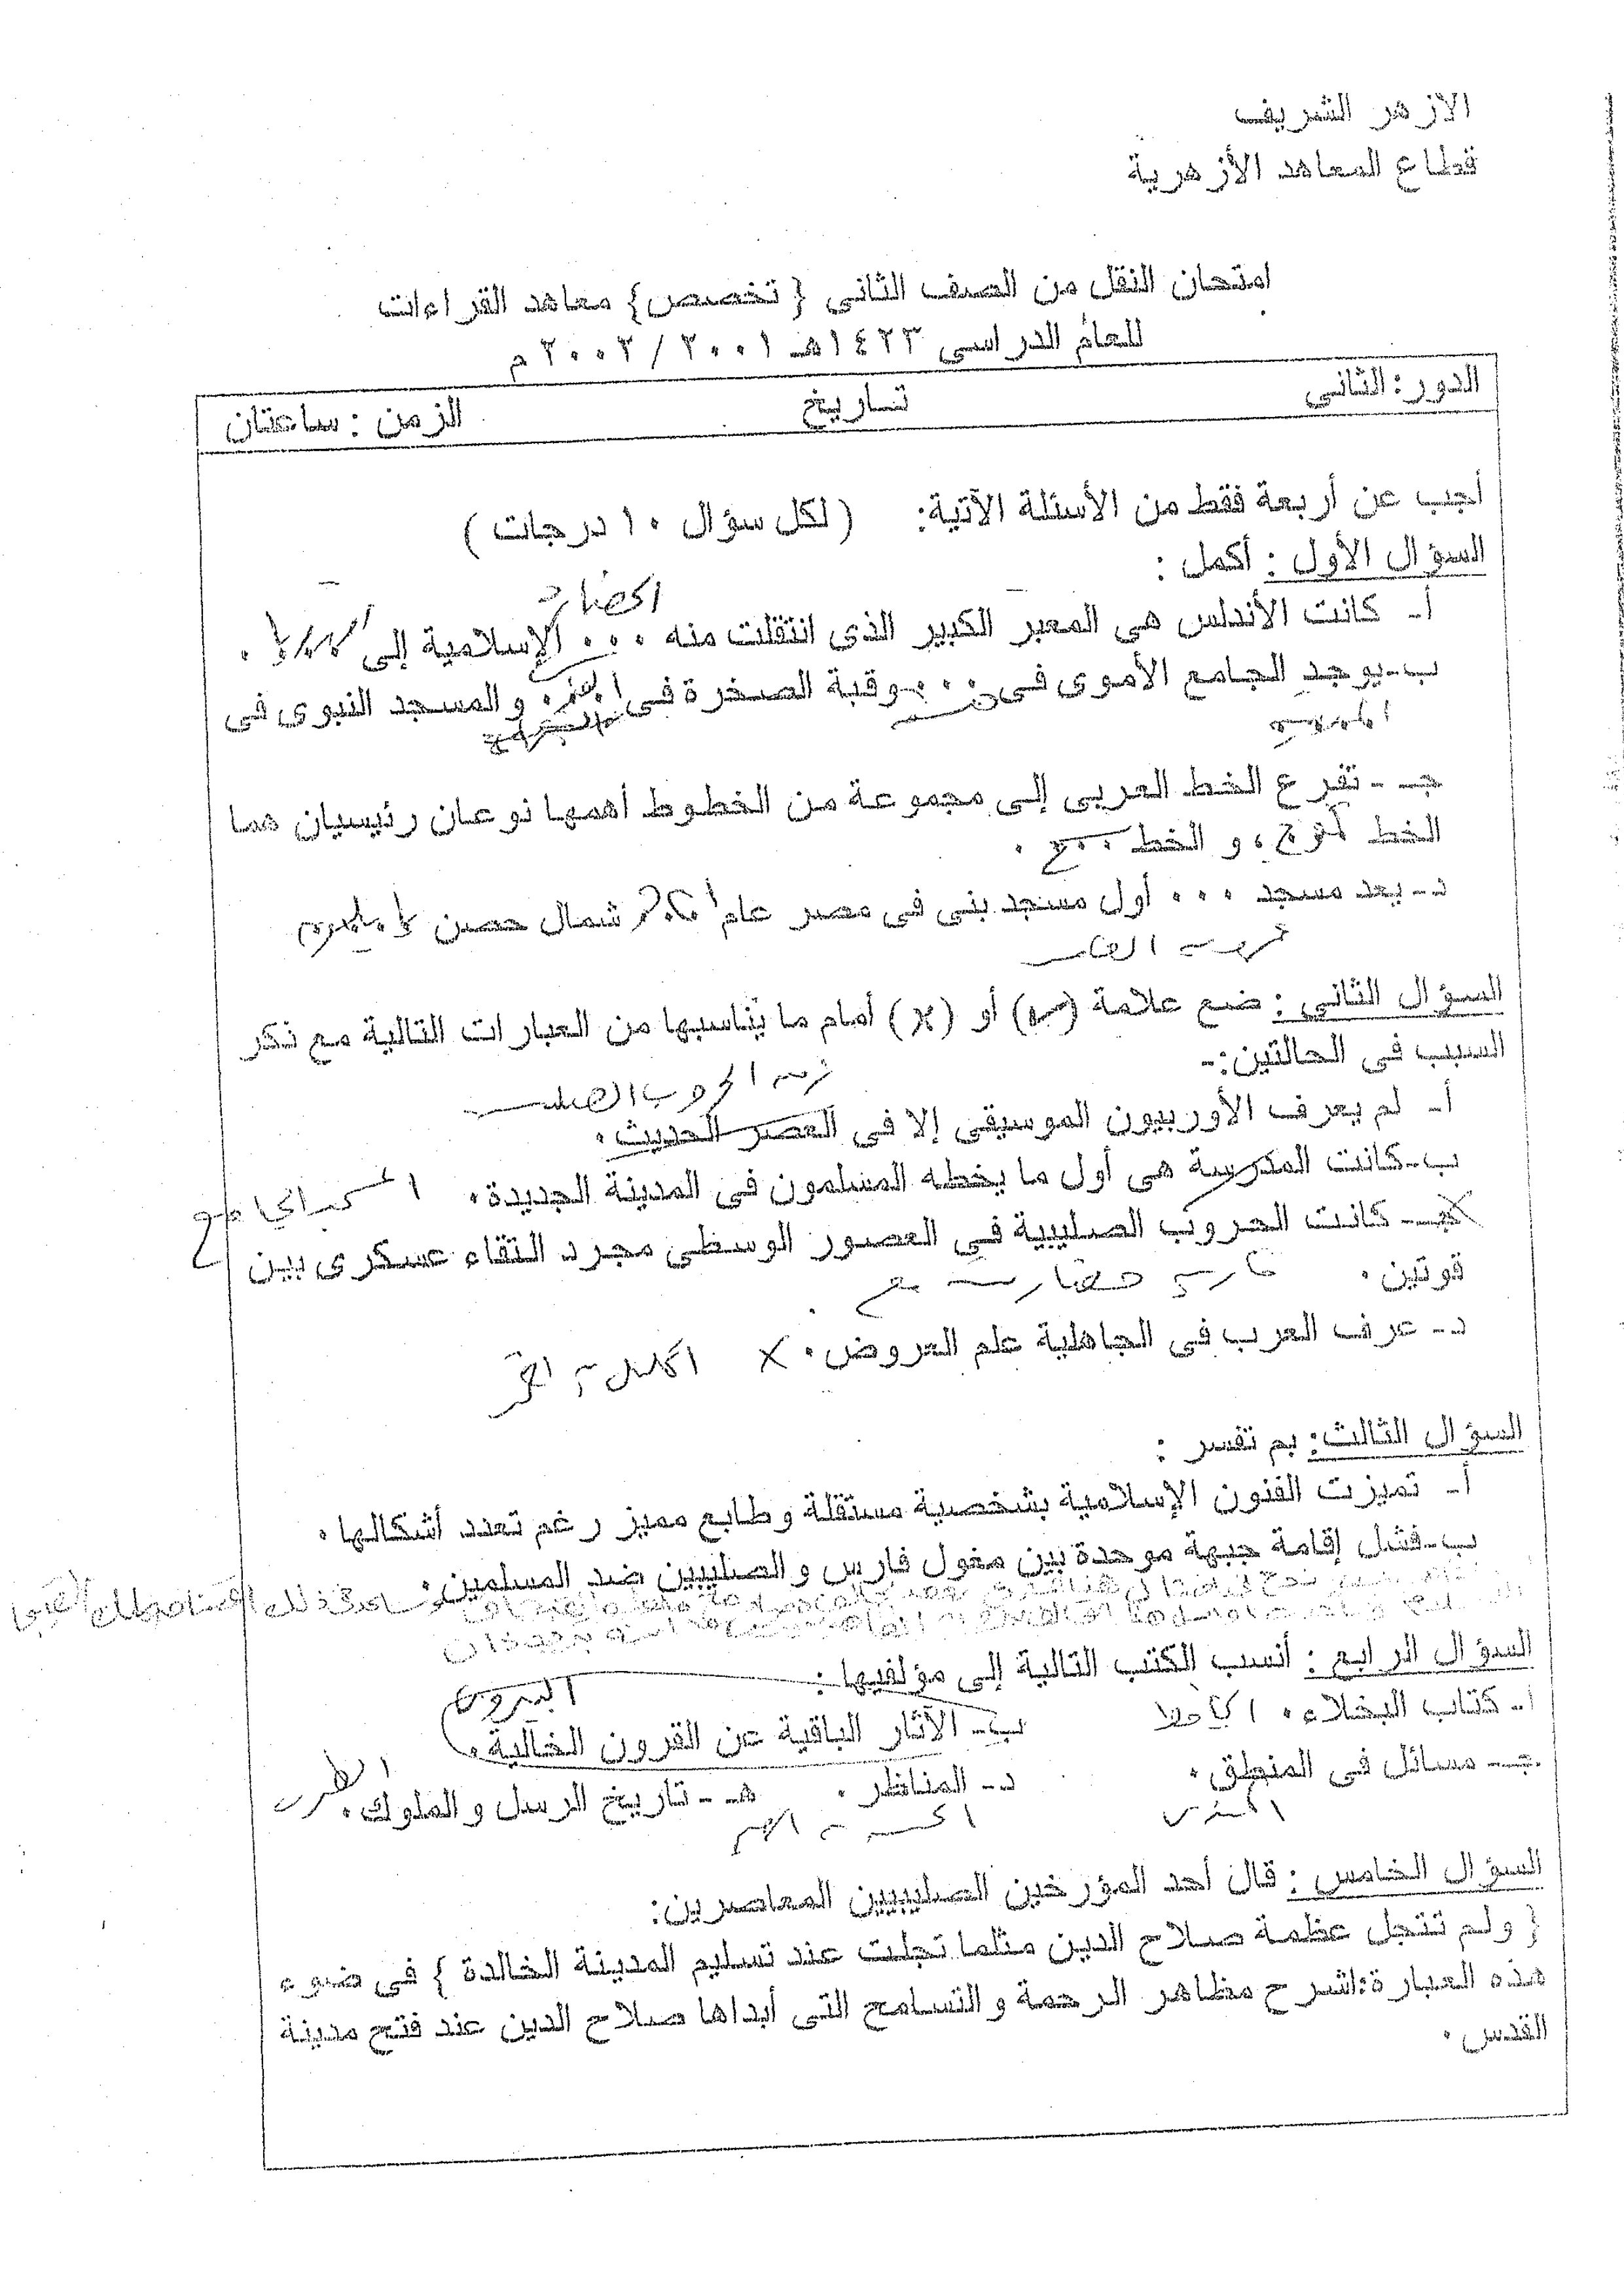 الأزهر الشريف
قطاع المعاهد الأزهرية
امتحان النقل من الصف الثانى {تخصص} معاهد القراءات
للعام الدراسى ١٤٢٣هـ ٢٠٠١/ ٢٠٠٢م
الدور: الثانى تاريخ الزمن: ساعتان
أجب عن أربعة فقط من الأسئلة الآتية: (لكل سؤال ١٠ درجات)
السؤال الأول: أكمل:
الحضارة
أ- كانت الأندلس هى المعبر الكبير الذى انتقلت منه ... الإسلامية إلى
ب- يوجد الجامع الأموى فى ... وقبة الصخرة فى والمسجد النبوى فى
جـ- تفرع الخط العربى إلى مجموعة من الخطوط أهمها نوعان رئيسيان هما
الخط ، و الخط ...
د- يعد مسجد ... أول مسجد بنى فى مصر عام شمال حصن
عمرو بن العاص
السؤال الثانى: ضع علامة (✓) أو (×) أمام ما يناسبها من العبارات التالية مع ذكر
السبب فى الحالتين:-
زمن الحروب الصليبية
أ- لم يعرف الأوربيون الموسيقى إلا فى العصر الحديث.
ب- كانت المدرسة هى أول ما يخطه المسلمون فى المدينة الجديدة. المسجد الجامع
جـ- كانت الحروب الصليبية فى العصور الوسطى مجرد التقاء عسكرى بين
قوتين.
د- عرف العرب فى الجاهلية علم العروض. × الخليل بن أحمد
السؤال الثالث: بم تفسر:
أ- تميزت الفنون الإسلامية بشخصية مستقلة وطابع مميز رغم تعدد أشكالها.
ب- فشل إقامة جبهة موحدة بين مغول فارس والصليبين ضد المسلمين.
السؤال الرابع: أنسب الكتب التالية إلى مؤلفيها:
البيرونى
أ- كتاب البخلاء. الجاحظ ب- الآثار الباقية عن القرون الخالية.
جـ- مسائل فى المنطق. د- المناظر. هـ- تاريخ الرسل والملوك. الطبرى
الحسن بن الهيثم
السؤال الخامس: قال أحد المؤرخين الصليبيين المعاصرين:
{ولم تتجل عظمة صلاح الدين مثلما تجلت عند تسليم المدينة الخالدة} فى ضوء
هذه العبارة: اشرح مظاهر الرحمة والتسامح التى أبداها صلاح الدين عند فتح مدينة
القدس.